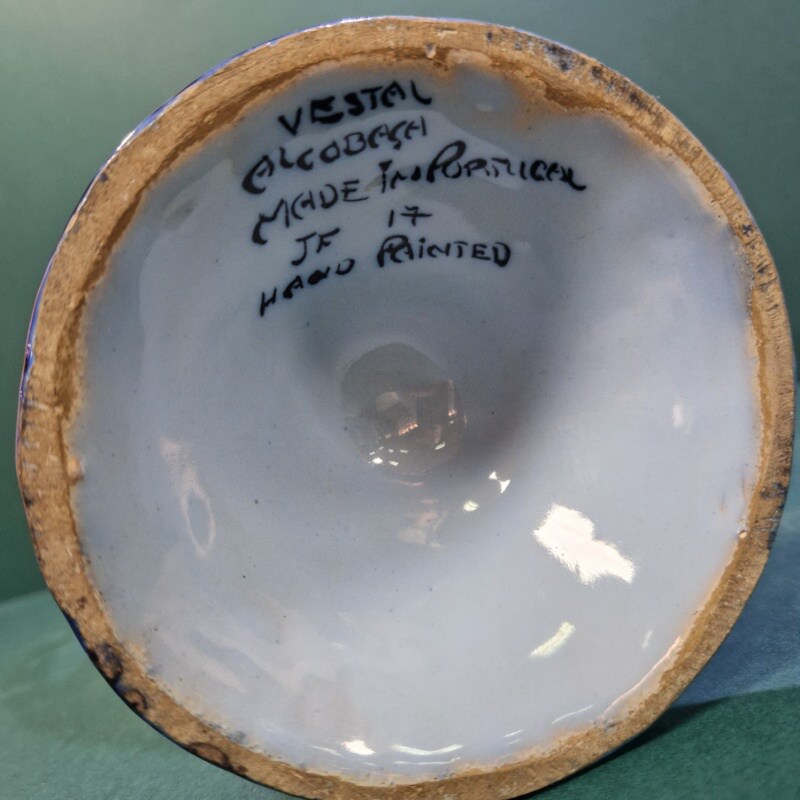 VESTAL
ALCOBAÇA
MADE IN PORTUGAL
JF 17
HAND PAINTED